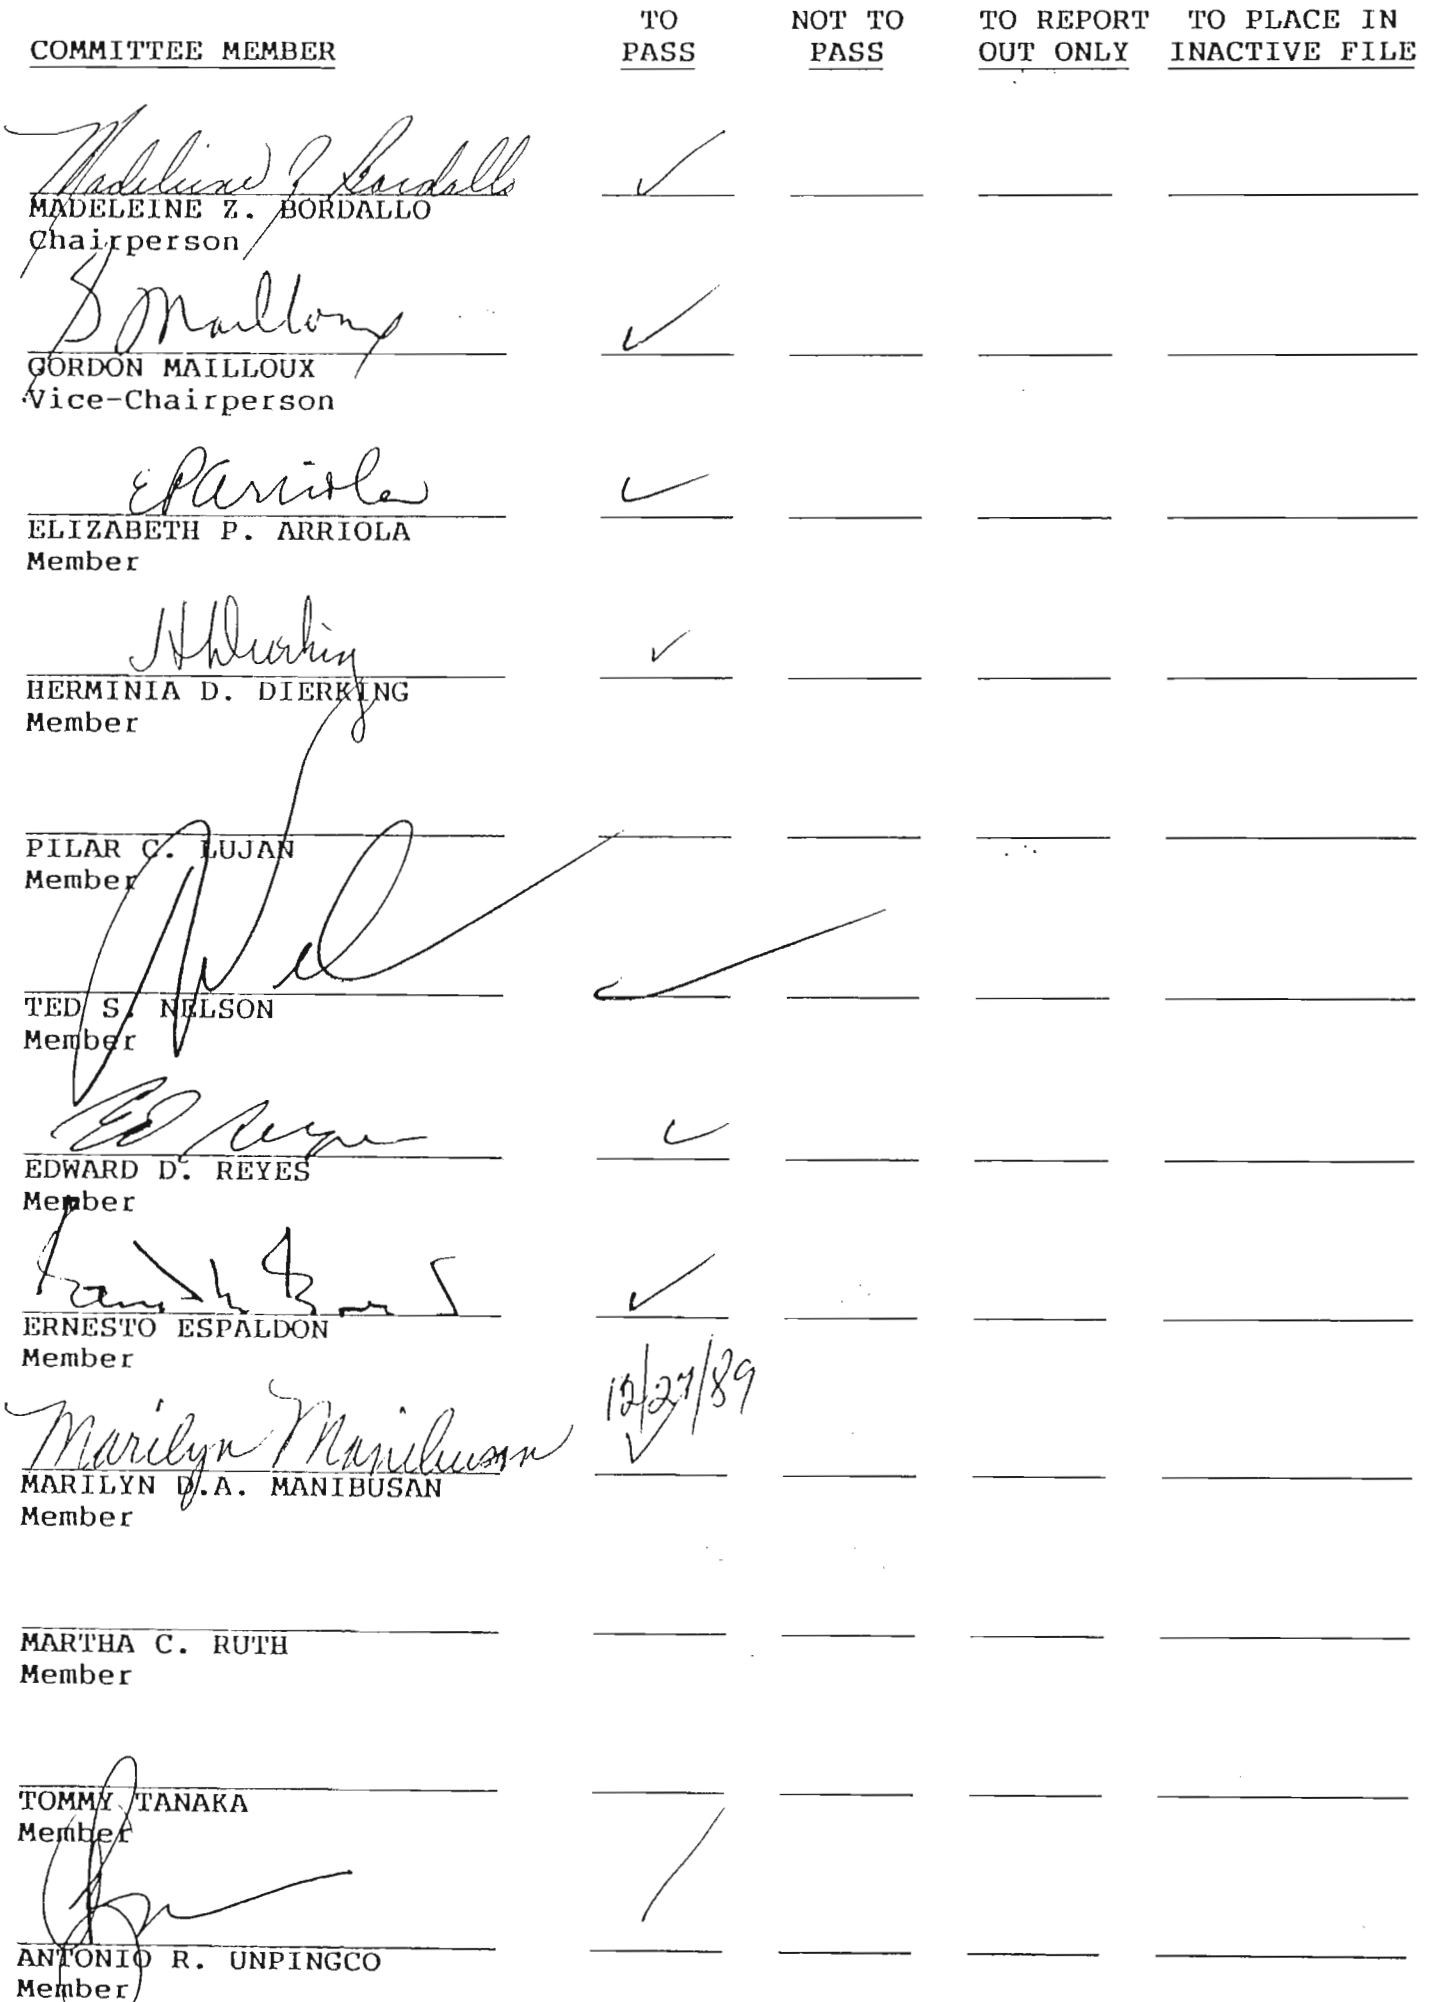 TO NOT TO TO REPORT TO PLACE IN
COMMITTEE MEMBER PASS PASS OUT ONLY INACTIVE FILE
Madeleine Z Bordallo ✓
MADELEINE Z. BORDALLO
Chairperson
G Mailloux ✓
GORDON MAILLOUX
Vice-Chairperson
EPArriola ✓
ELIZABETH P. ARRIOLA
Member
HDDierking ✓
HERMINIA D. DIERKING
Member
PILAR C. LUJAN
Member
✓
TED S. NELSON
Member
Ed Reyes ✓
EDWARD D. REYES
Member
✓
ERNESTO ESPALDON
Member
12/27/89
Marilyn Manibusan ✓
MARILYN D.A. MANIBUSAN
Member
MARTHA C. RUTH
Member
TOMMY TANAKA
Member
/
ANTONIO R. UNPINGCO
Member